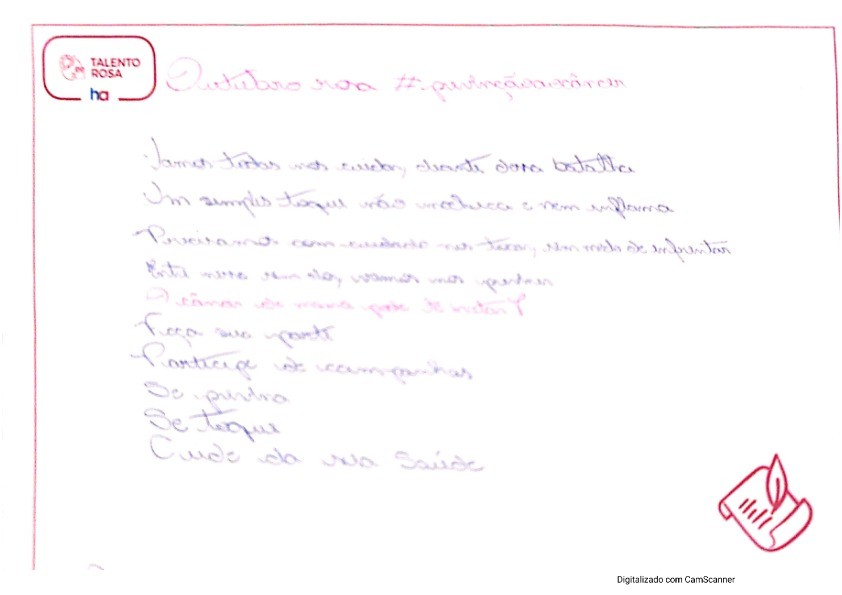 TALENTO
ROSA
ha
Outubro rosa #prevençãoaocâncer
Vamos todas nos cuidar, diante dessa batalha
Um simples toque não machuca e nem inflama
Precisamos com cuidado nos tocar, sem medo de enfrentar
Este nosso vamos nos prevenir
O câncer de mama pode te matar!
Faça sua parte
Participe de campanhas
Se previna
Se toque
Cuide da sua Saúde
Digitalizado com CamScanner